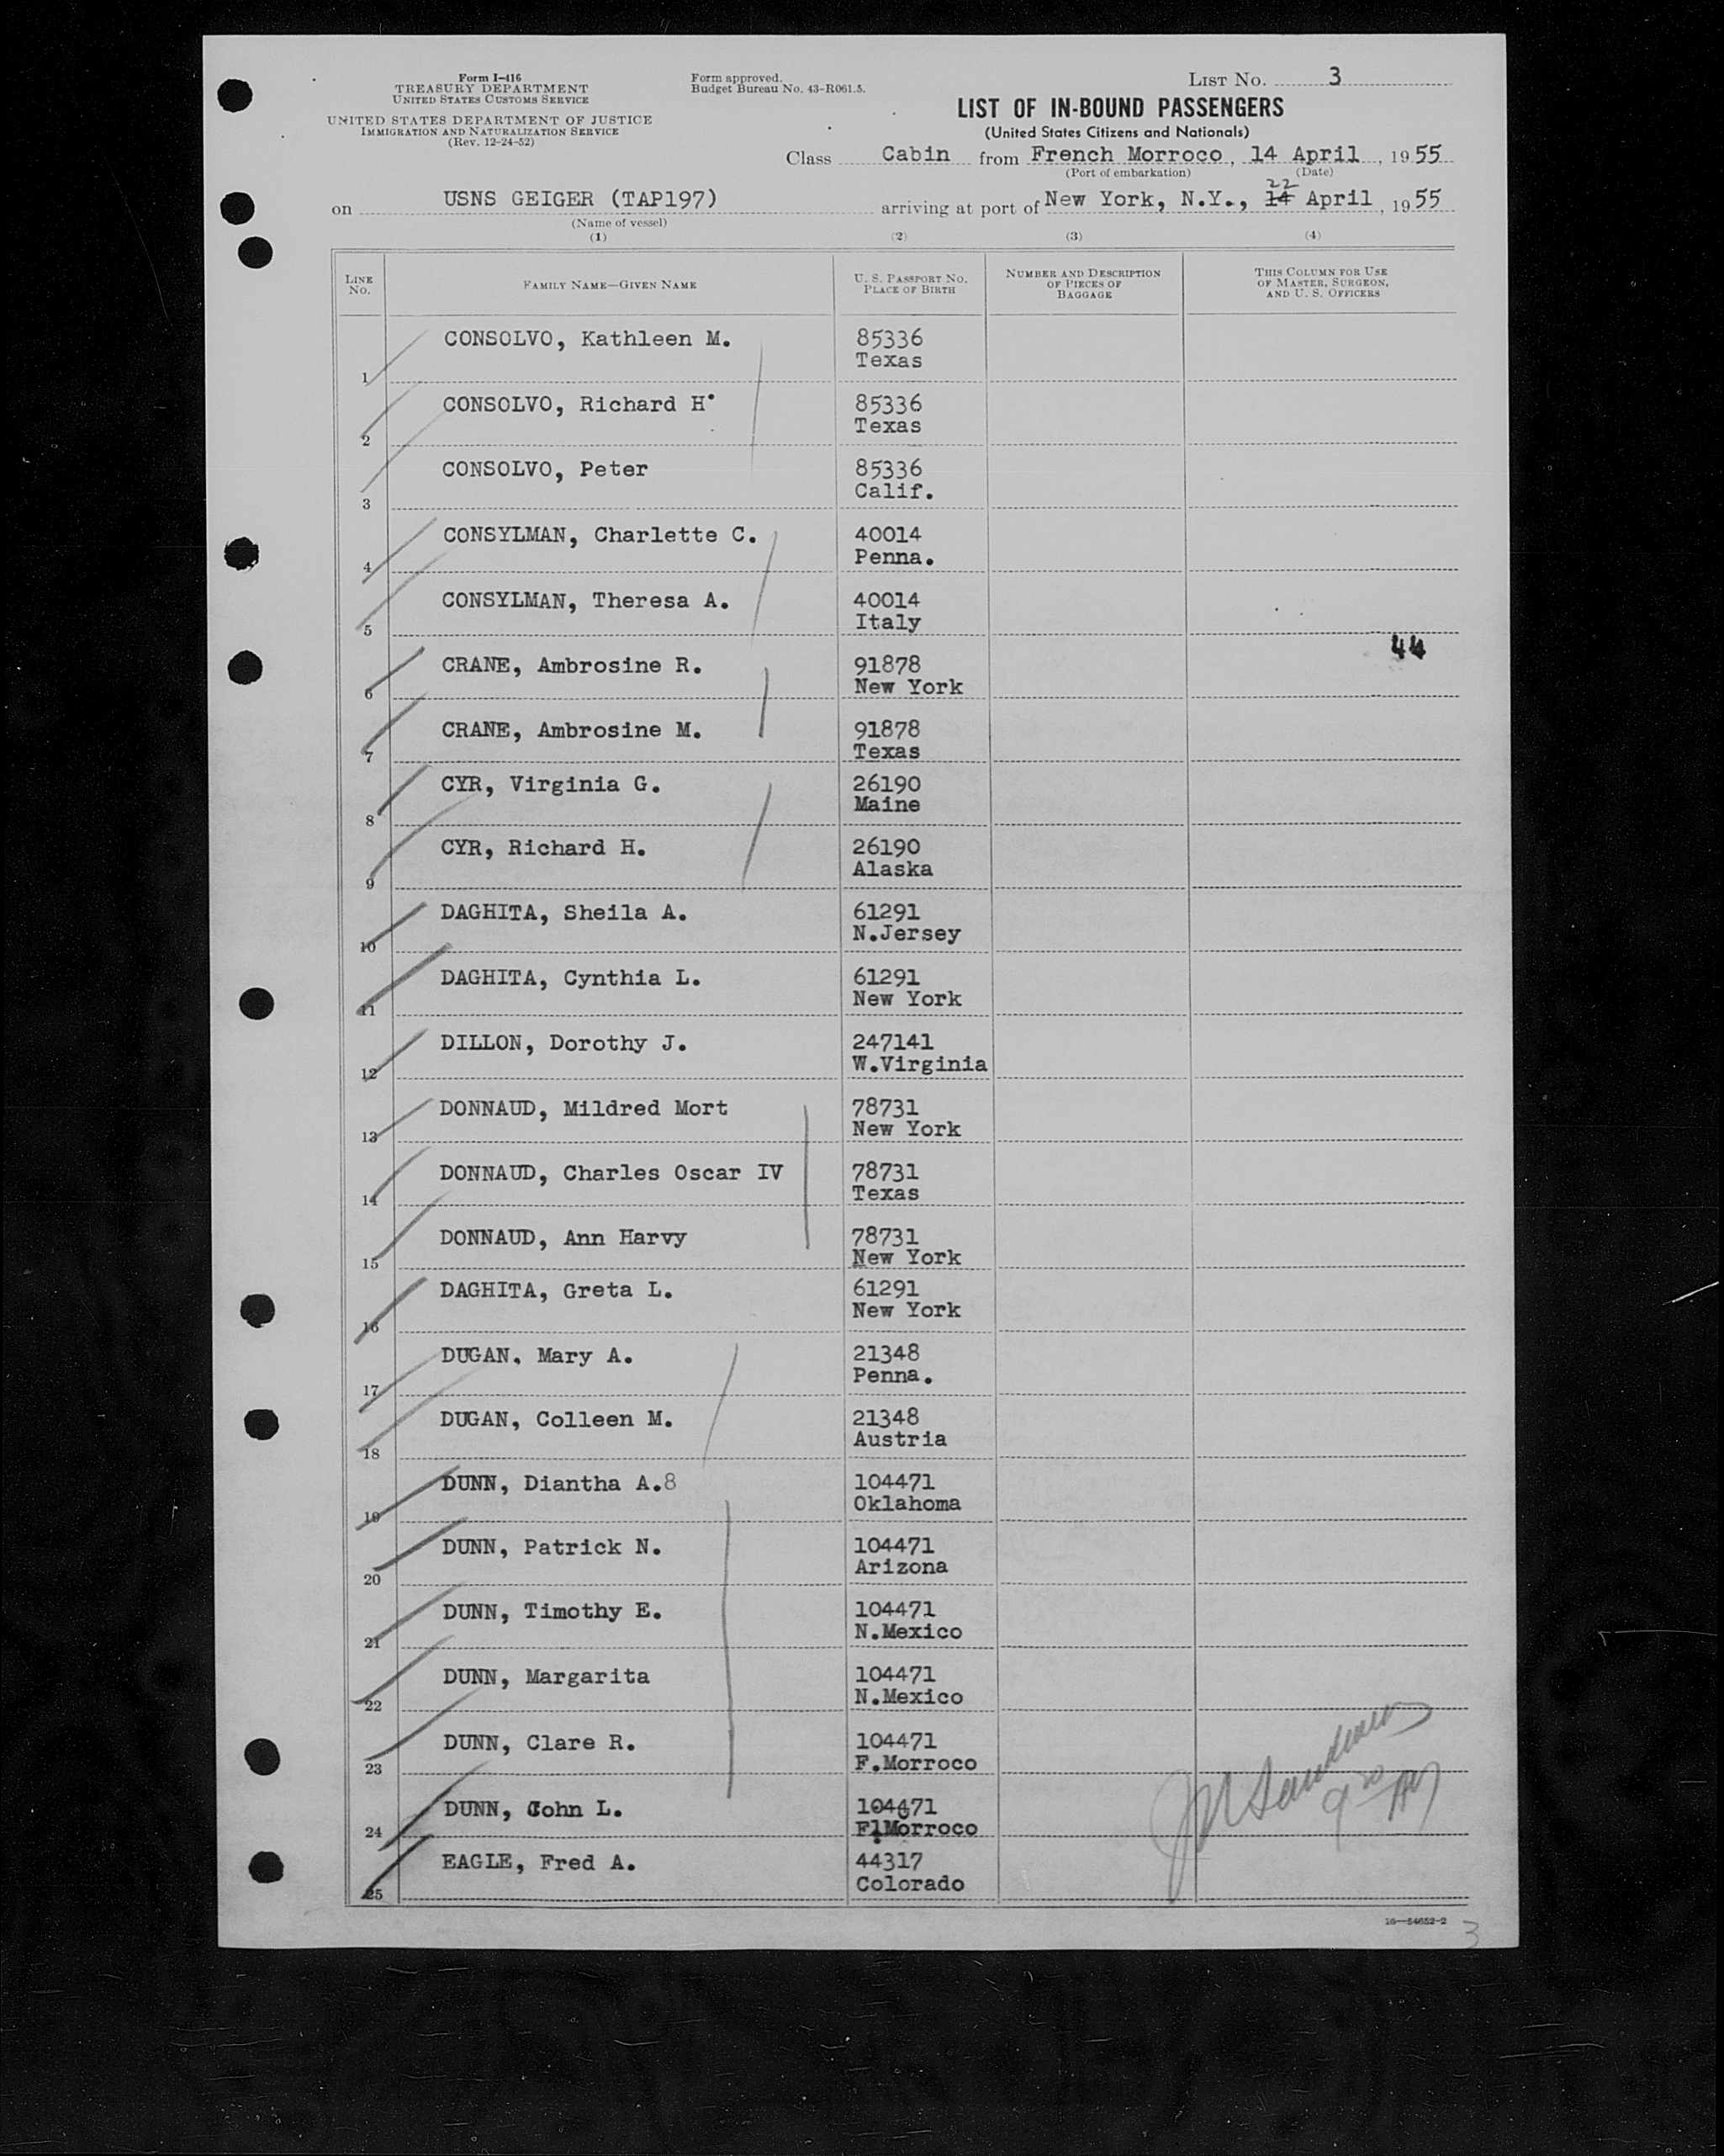 Form I-416
TREASURY DEPARTMENT
UNITED STATES CUSTOMS SERVICE
UNITED STATES DEPARTMENT OF JUSTICE
IMMIGRATION AND NATURALIZATION SERVICE
(Rev. 12-24-52)
Form approved.
Budget Bureau No. 43-R061.5.
LIST NO. 3
LIST OF IN-BOUND PASSENGERS
(United States Citizens and Nationals)
Class Cabin from French Morroco, 14 April, 1955
(Port of embarkation) (Date)
22
on USNS GEIGER (TAP197) arriving at port of New York, N.Y., 14 April, 1955
(Name of vessel)
(1) (2) (3) (4)
LINE NO. FAMILY NAME—GIVEN NAME U. S. PASSPORT NO. PLACE OF BIRTH NUMBER AND DESCRIPTION OF PIECES OF BAGGAGE THIS COLUMN FOR USE OF MASTER, SURGEON, AND U. S. OFFICERS
CONSOLVO, Kathleen M. 85336
1 Texas
CONSOLVO, Richard H. 85336
2 Texas
CONSOLVO, Peter 85336
3 Calif.
CONSYLMAN, Charlette C. 40014
4 Penna.
CONSYLMAN, Theresa A. 40014
5 Italy
44
CRANE, Ambrosine R. 91878
6 New York
CRANE, Ambrosine M. 91878
7 Texas
CYR, Virginia G. 26190
8 Maine
CYR, Richard H. 26190
9 Alaska
DAGHITA, Sheila A. 61291
10 N.Jersey
DAGHITA, Cynthia L. 61291
11 New York
DILLON, Dorothy J. 247141
12 W.Virginia
DONNAUD, Mildred Mort 78731
13 New York
DONNAUD, Charles Oscar IV 78731
14 Texas
DONNAUD, Ann Harvy 78731
15 New York
DAGHITA, Greta L. 61291
16 New York
DUGAN, Mary A. 21348
17 Penna.
DUGAN, Colleen M. 21348
18 Austria
DUNN, Diantha A.8 104471
19 Oklahoma
DUNN, Patrick N. 104471
20 Arizona
DUNN, Timothy E. 104471
21 N.Mexico
DUNN, Margarita 104471
22 N.Mexico
DUNN, Clare R. 104471
23 F.Morroco
DUNN, John L. 104471
24 F.Morroco
EAGLE, Fred A. 44317
25 Colorado
16—54652-2
3